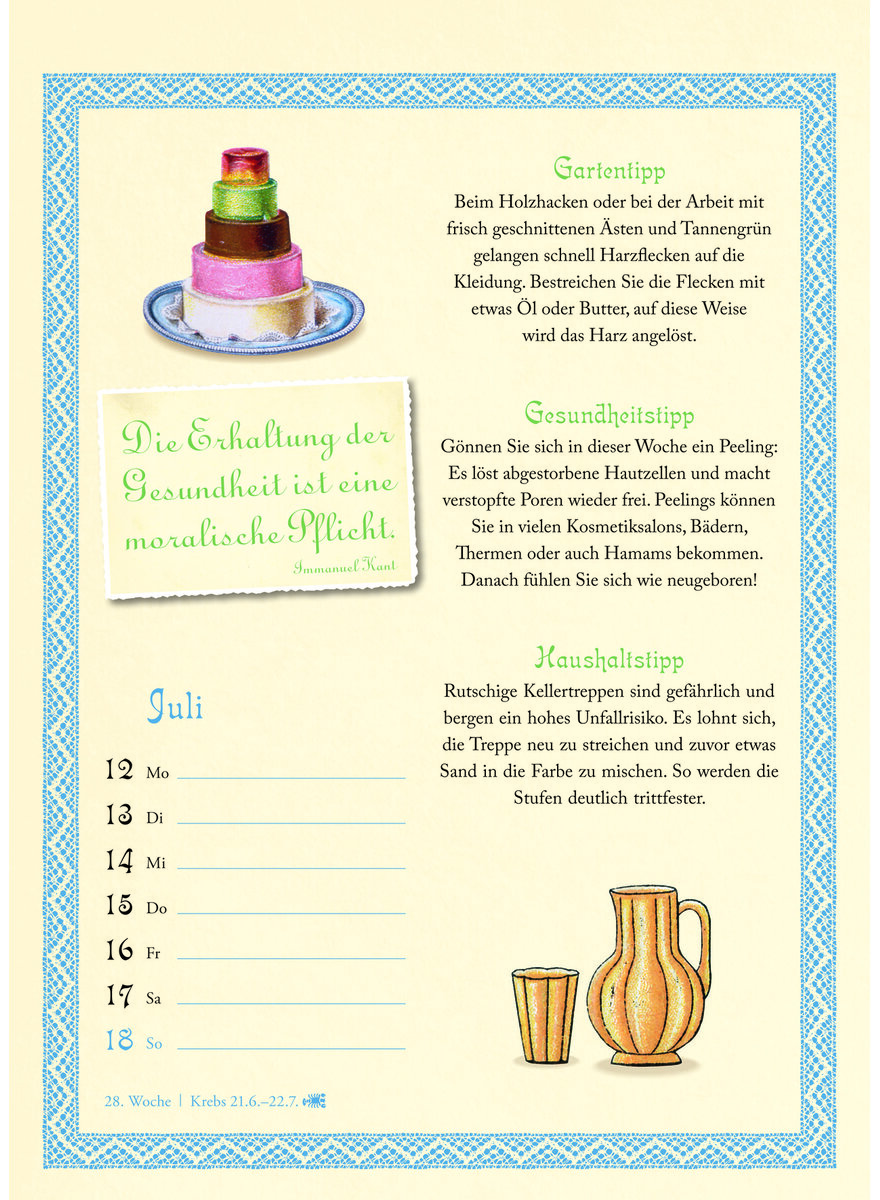 Gartentipp
Beim Holzhacken oder bei der Arbeit mit
frisch geschnittenen Ästen und Tannengrün
gelangen schnell Harzflecken auf die
Kleidung. Bestreichen Sie die Flecken mit
etwas Öl oder Butter, auf diese Weise
wird das Harz angelöst.
Die Erhaltung der
Gesundheit ist eine
moralische Pflicht.
Immanuel Kant
Gesundheitstipp
Gönnen Sie sich in dieser Woche ein Peeling:
Es löst abgestorbene Hautzellen und macht
verstopfte Poren wieder frei. Peelings können
Sie in vielen Kosmetiksalons, Bädern,
Thermen oder auch Hamams bekommen.
Danach fühlen Sie sich wie neugeboren!
Haushaltstipp
Rutschige Kellertreppen sind gefährlich und
bergen ein hohes Unfallrisiko. Es lohnt sich,
die Treppe neu zu streichen und zuvor etwas
Sand in die Farbe zu mischen. So werden die
Stufen deutlich trittfester.
Juli
12 Mo
13 Di
14 Mi
15 Do
16 Fr
17 Sa
18 So
28. Woche | Krebs 21.6.–22.7.